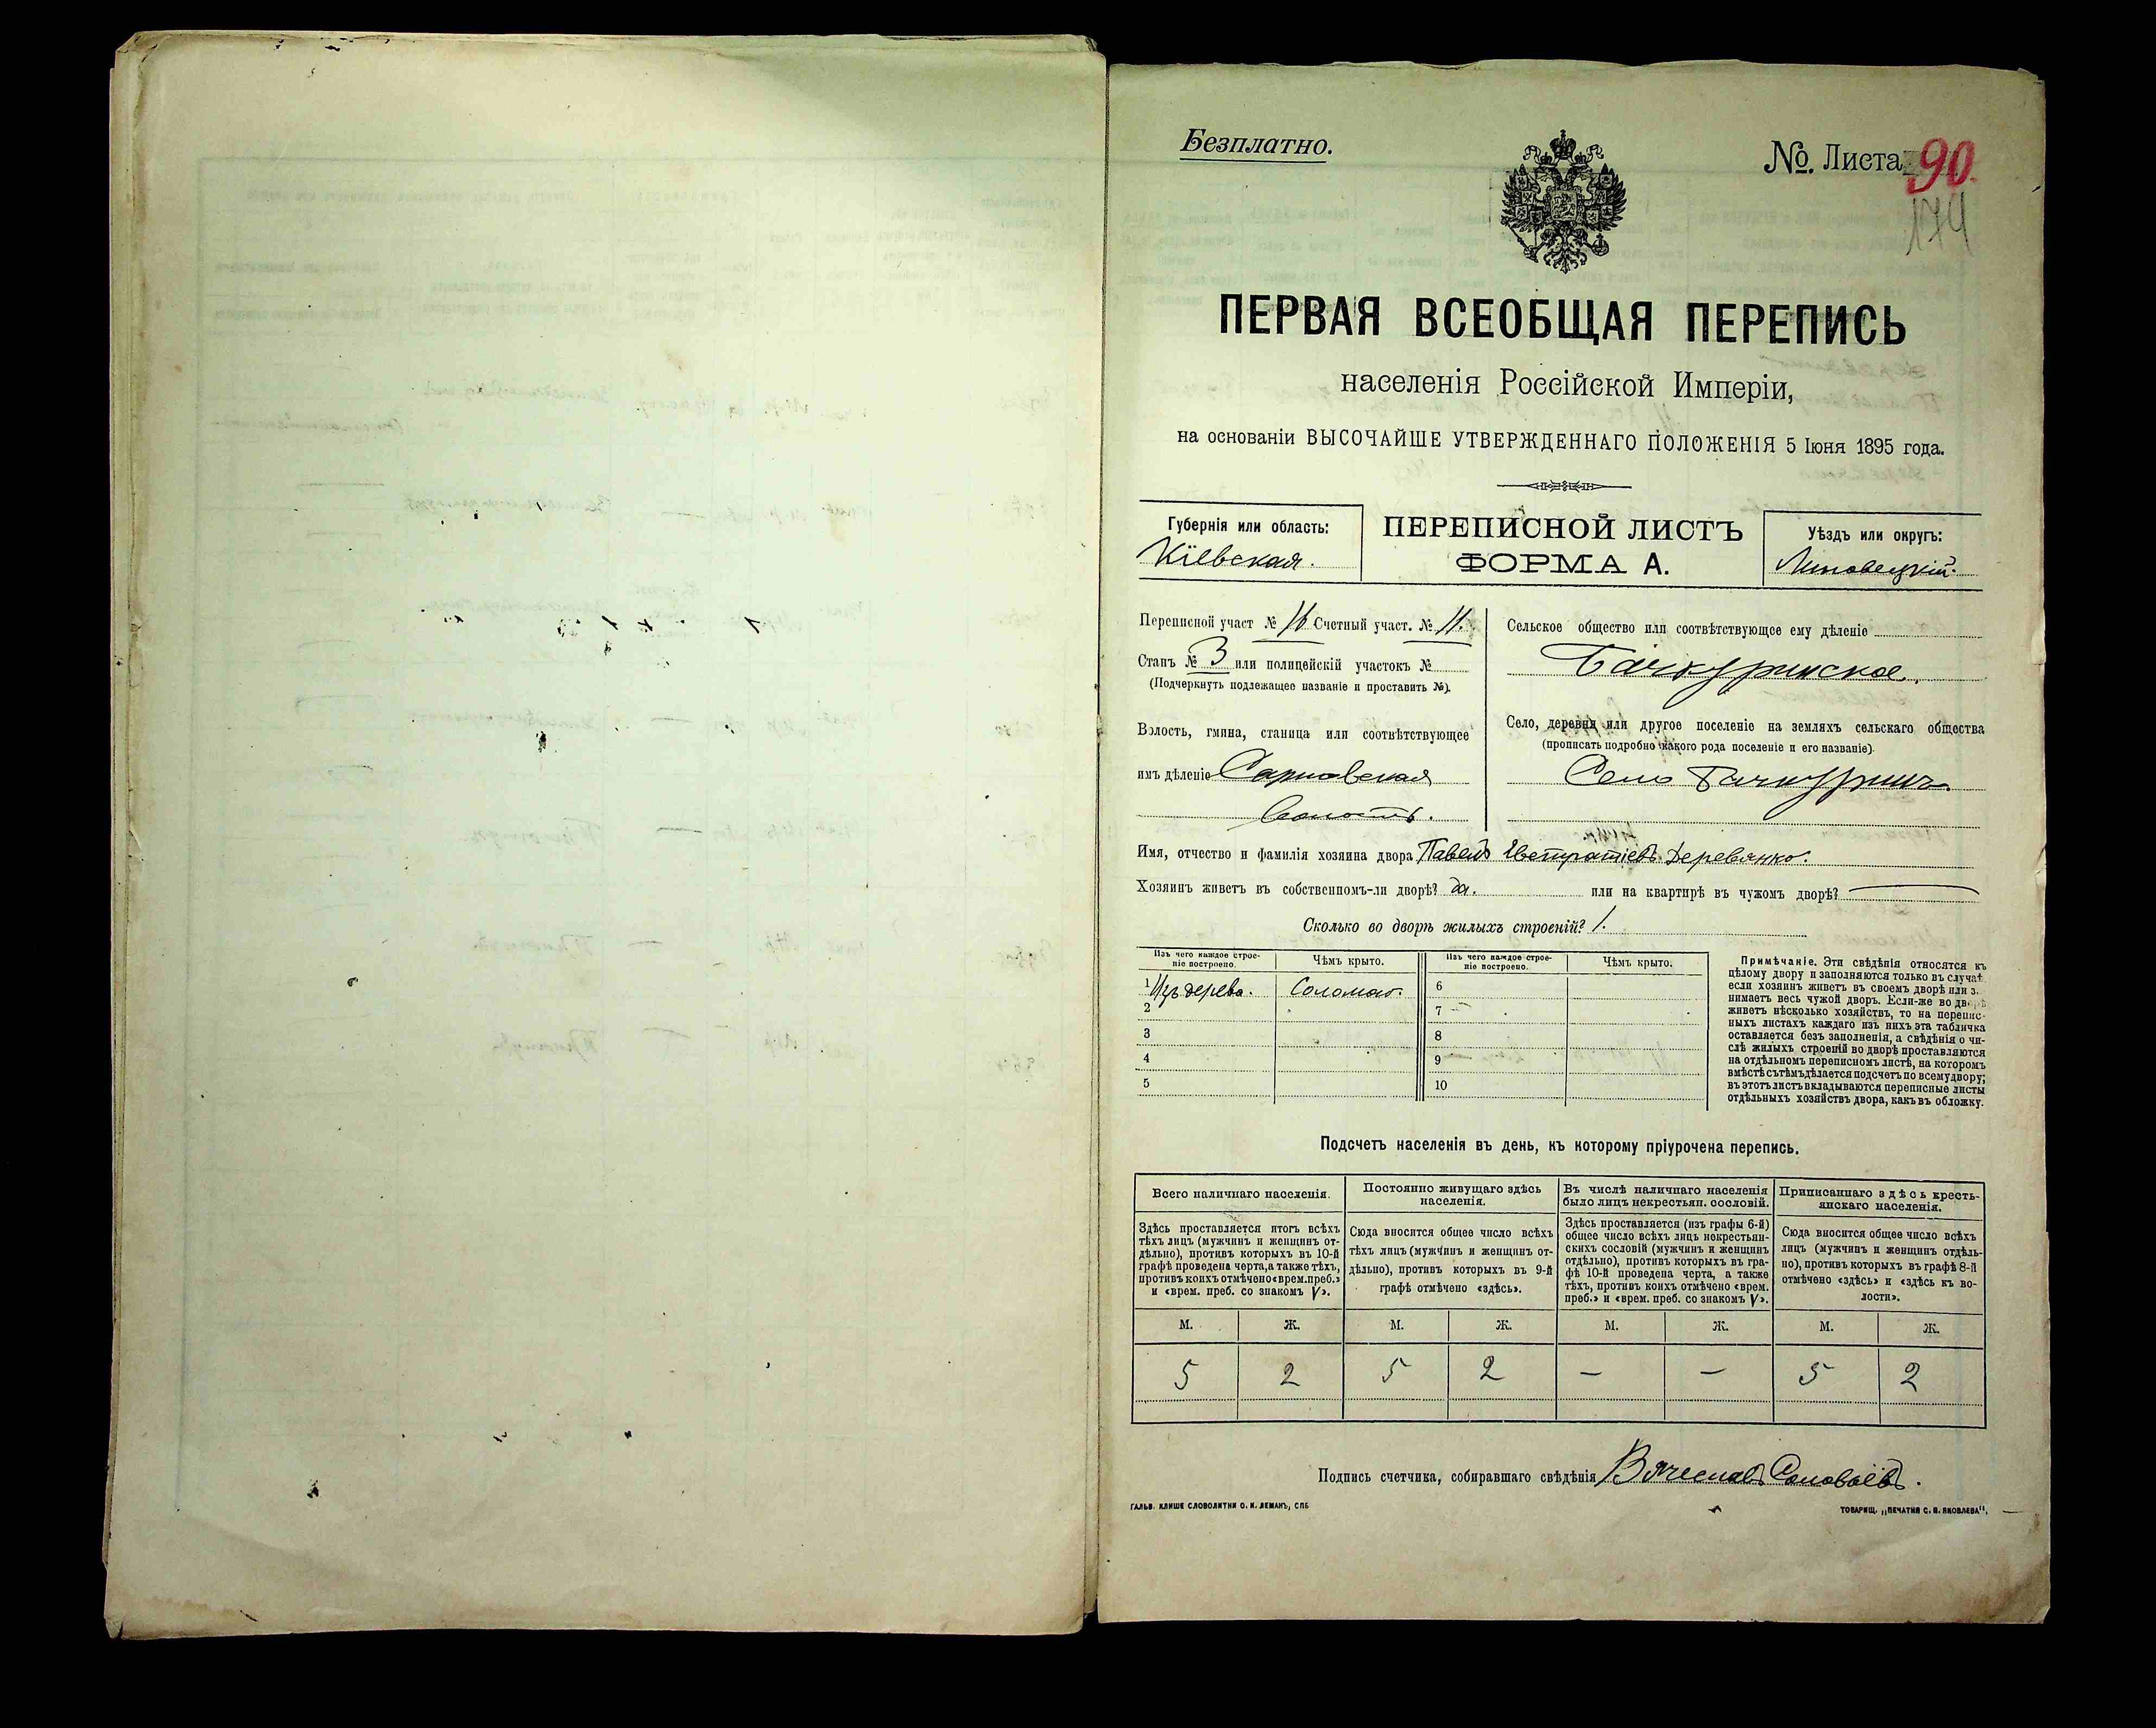 Безплатно.
№. Листа 90
174
ПЕРВАЯ ВСЕОБЩАЯ ПЕРЕПИСЬ
населенія Россійской Имперіи,
на основаніи ВЫСОЧАЙШЕ УТВЕРЖДЕННАГО ПОЛОЖЕНІЯ 5 Іюня 1895 года.
Губернія или область:
Кіевская.
ПЕРЕПИСНОЙ ЛИСТЪ
ФОРМА А.
Уѣздъ или округъ:
Липовецкій.
Переписной участ № 16 Счетный участ. № 11.
Станъ № 3 или полицейскій участокъ №
(Подчеркнуть подлежащее названіе и проставить №).
Волость, гмина, станица или соотвѣтствующее
имъ дѣленіе Сарновская
Волость.
Сельское общество или соотвѣтствующее ему дѣленіе
Бачкуринское.
Село, деревня или другое поселеніе на земляхъ сельскаго общества
(прописать подробно какого рода поселеніе и его названіе).
Село Бачкуринъ
Имя, отчество и фамилія хозяина двора Павелъ Евстратіевъ Деревянко.
Хозяинъ живетъ въ собственномъ-ли дворѣ? да. или на квартирѣ въ чужомъ дворѣ? —
Сколько во дворѣ жилыхъ строеній? 1.
Изъ чего каждое строе-
ніе построено.
Чѣмъ крыто.
Изъ чего каждое строе-
ніе построено.
Чѣмъ крыто.
1 Изъ дерева. Соломою. 6
2 7
3 8
4 9
5 10
Примѣчаніе. Эти свѣдѣнія относятся къ
цѣлому двору и заполняются только въ случаѣ
если хозяинъ живетъ въ своемъ дворѣ или за-
нимаетъ весь чужой дворъ. Если-же во дворѣ
живетъ нѣсколько хозяйствъ, то на перепис-
ныхъ листахъ каждаго изъ нихъ эта табличка
оставляется безъ заполненія, а свѣдѣнія о чи-
слѣ жилыхъ строеній во дворѣ проставляются
на отдѣльномъ переписномъ листѣ, на которомъ
вмѣстѣ съ тѣмъ дѣлается подсчетъ по всему двору;
въ этотъ листъ вкладываются переписные листы
отдѣльныхъ хозяйствъ двора, какъ въ обложку.
Подсчетъ населенія въ день, къ которому пріурочена перепись.
Всего наличнаго населенія.
Здѣсь проставляется итогъ всѣхъ
тѣхъ лицъ (мужчинъ и женщинъ от-
дѣльно), противъ которыхъ въ 10-й
графѣ проведена черта, а также тѣхъ,
противъ коихъ отмѣчено «врем. преб.»
и «врем. преб. со знакомъ V».
Постоянно живущаго здѣсь
населенія.
Сюда вносится общее число всѣхъ
тѣхъ лицъ (мужчинъ и женщинъ от-
дѣльно), противъ которыхъ въ 9-й
графѣ отмѣчено «здѣсь».
Въ числѣ наличнаго населенія
было лицъ некрестьян. сословій.
Здѣсь проставляется (изъ графы 6-й)
общее число всѣхъ лицъ некрестьян-
скихъ сословій (мужчинъ и женщинъ
отдѣльно), противъ которыхъ въ гра-
фѣ 10-й проведена черта, а также
тѣхъ, противъ коихъ отмѣчено «врем.
преб.» и «врем. преб. со знакомъ V».
Приписаннаго здѣсь кресть-
янскаго населенія.
Сюда вносится общее число всѣхъ
лицъ (мужчинъ и женщинъ отдѣль-
но), противъ которыхъ въ графѣ 8-й
отмѣчено «здѣсь» и «здѣсь къ во-
лости».
М. Ж. М. Ж. М. Ж. М. Ж.
5 2 5 2 — — 5 2
Подпись счетчика, собиравшаго свѣдѣнія Вячеславъ Соловьёвъ.
ГАЛЬВ. КЛИШЕ СЛОВОЛИТНИ О. И. ЛЕМАНЪ, СПБ
ТОВАРИЩ. „ПЕЧАТНЯ С. П. ЯКОВЛЕВА".